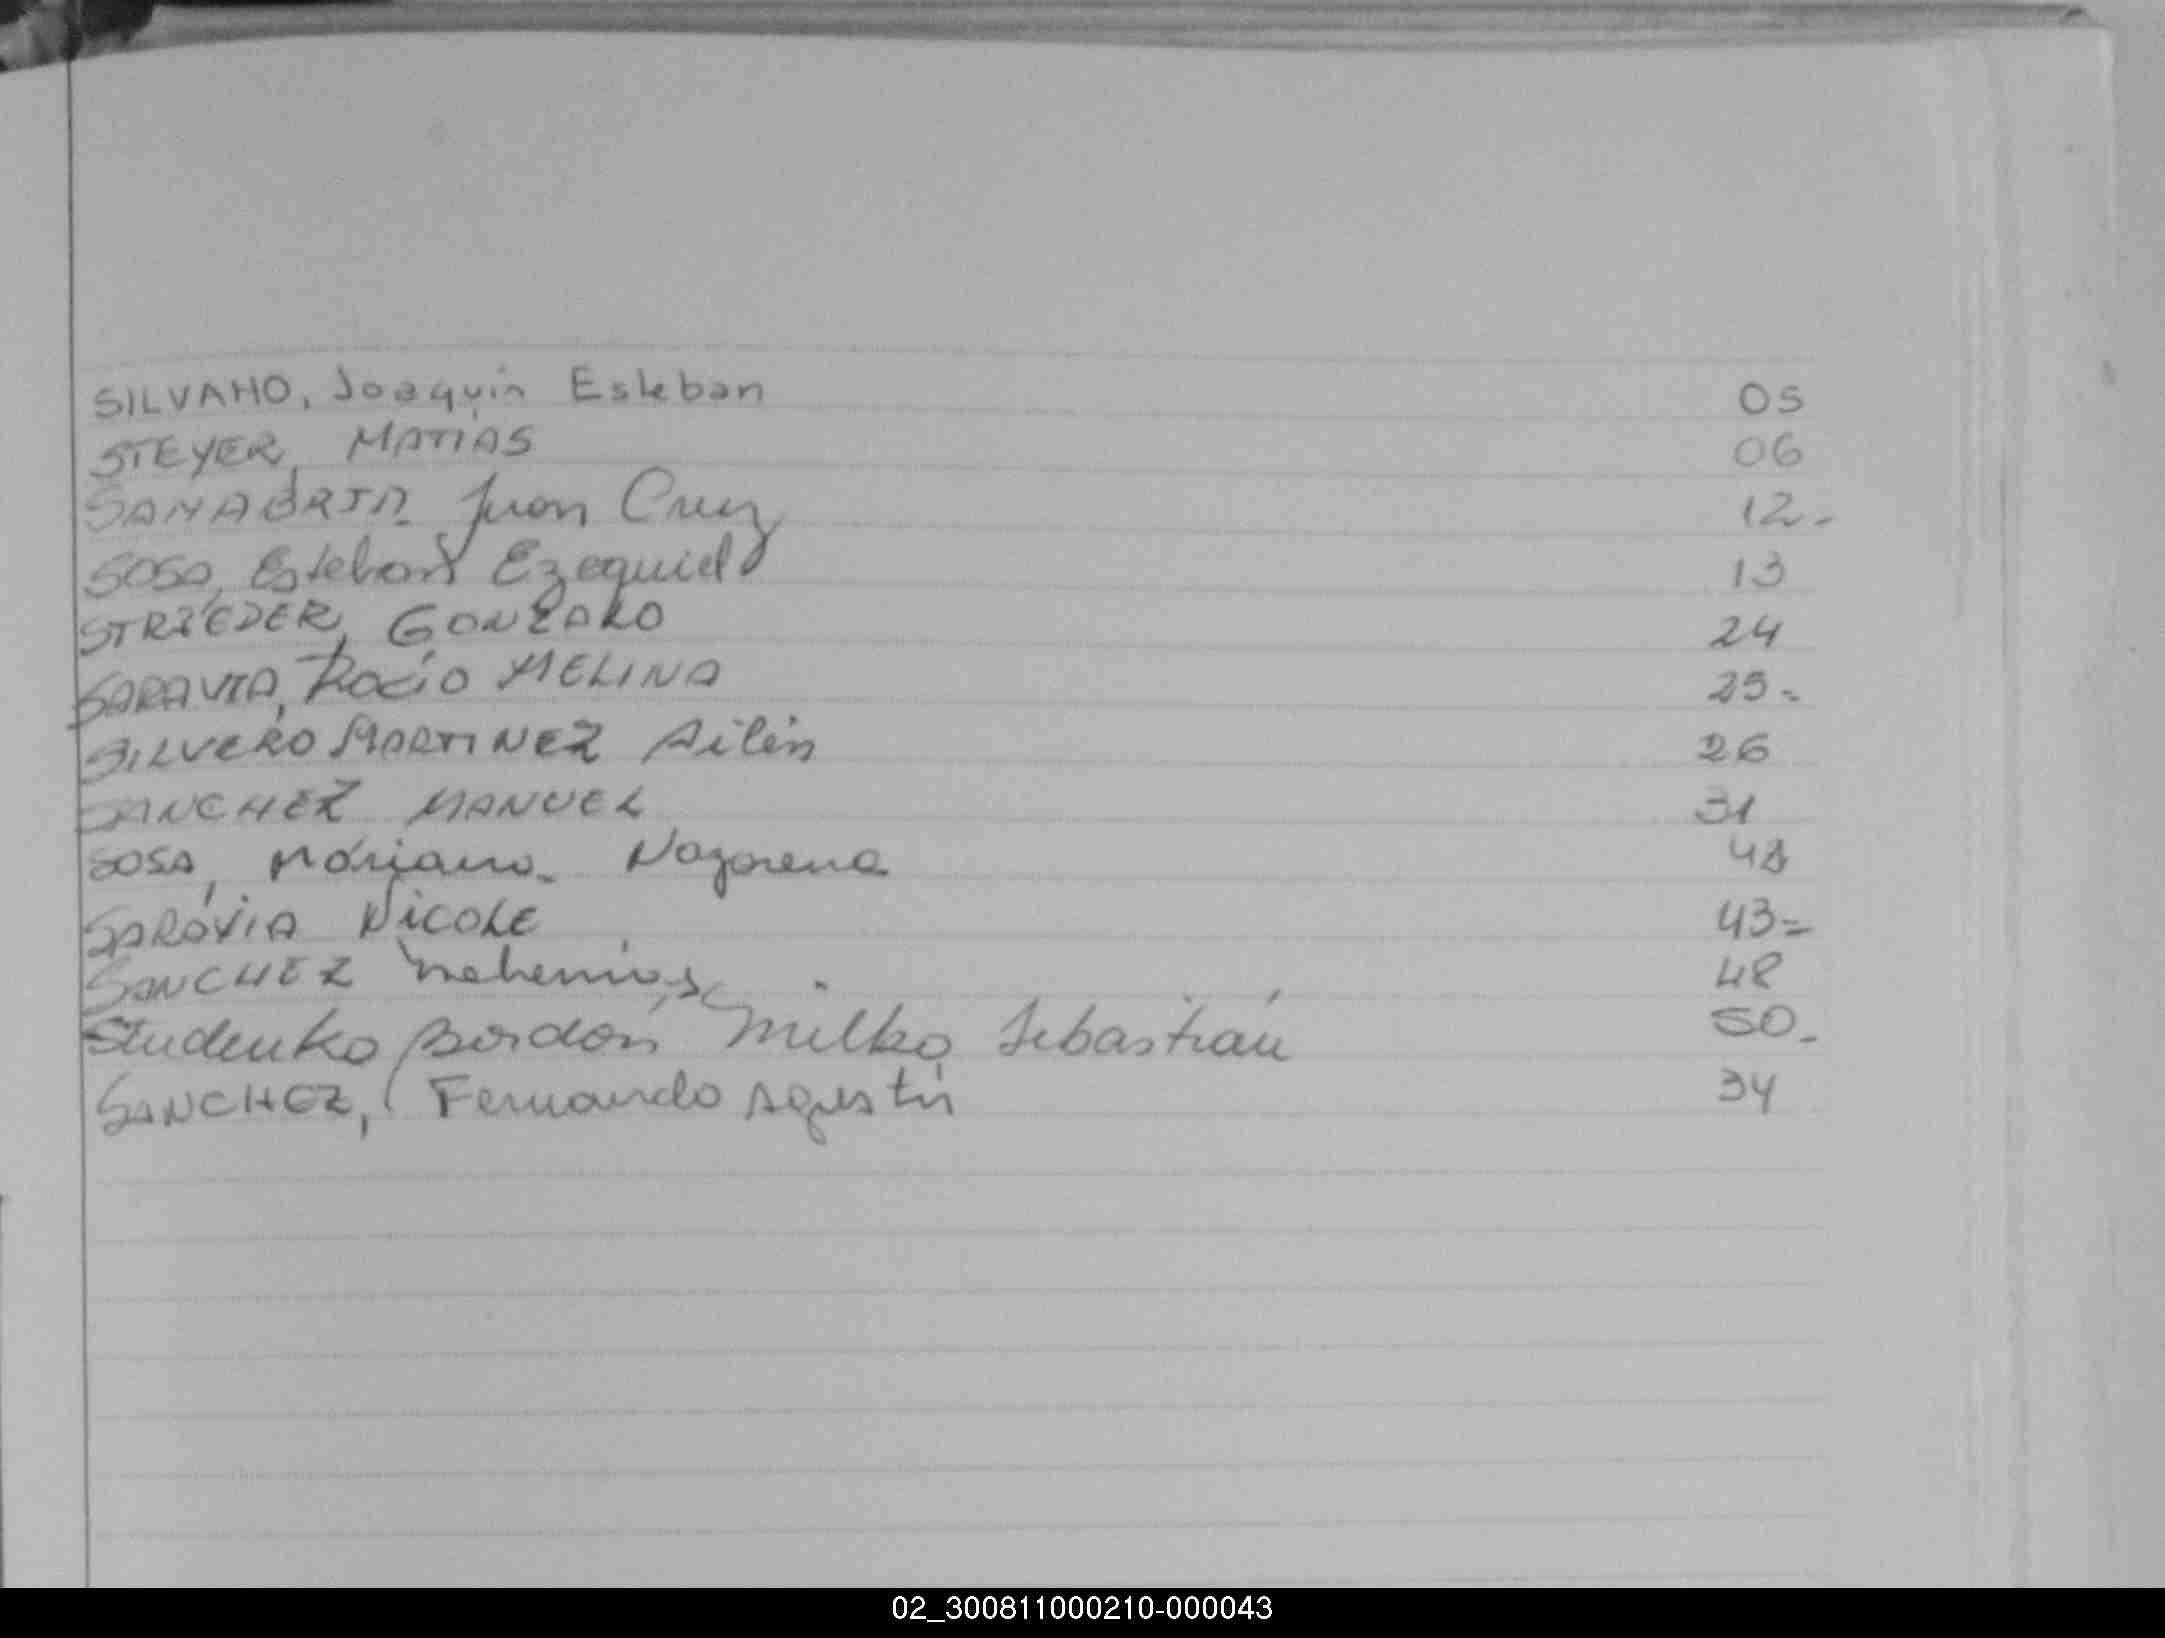 SILVANO, Joaquín Esteban 05
STEYER, MATIAS 06
SANABRIA Juan Cruz 12-
SOSA, Esteban Ezequiel 13
STRIEDER, GONZALO 24
SARAVIA, Rocío MELINA 25-
SILVERO MARTINEZ Ailén 26
SANCHEZ MANUEL 31
SOSA, Mariano Nazareno
SARAVIA NICOLE 43-
SANCHEZ Nehemias 48
Studenko Bordón, Milko Sebastián 50-
SANCHEZ, Fernando Agustín 34
02_300811000210-000043